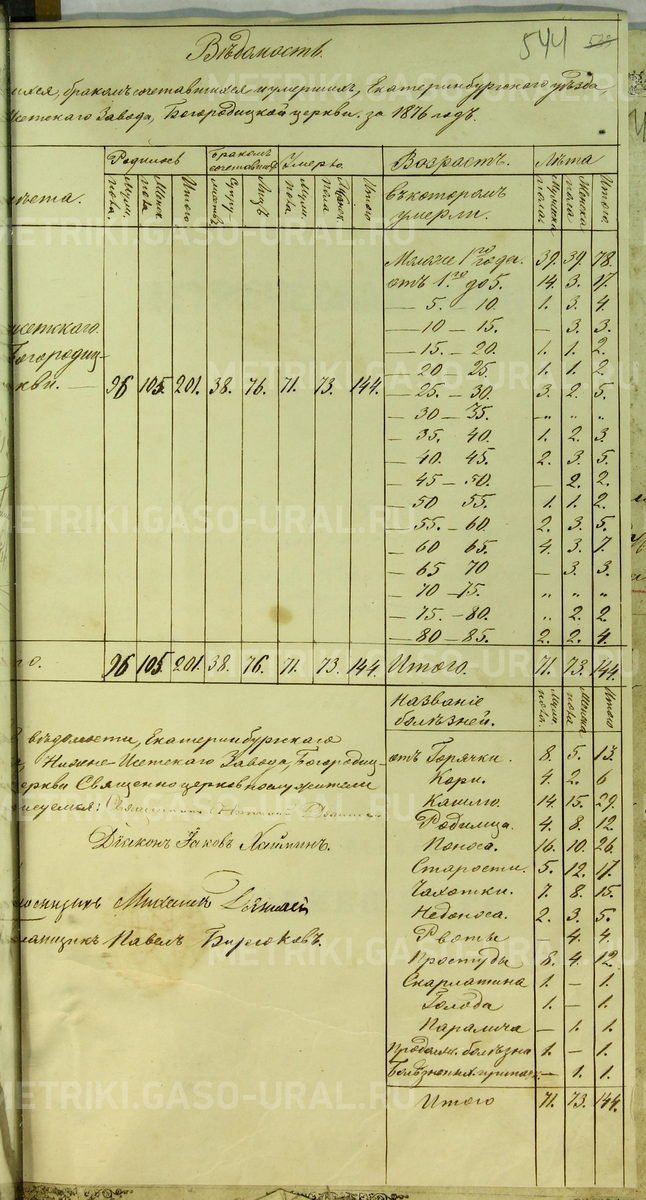 544
Вѣдомость.
ихся, бракомъ сочетавшихся и умершихъ, Екатеринбургскаго уѣзда
Исетскаго Завода, Богородицкой церкви. за 1876 годъ.
Родилось Бракомъ сочетавшихся Умерло. Возрастъ. Лѣта
мѣста. Муж. пола. Женск. пола Итого Супружествъ Лицъ Муж. пола. Женск. пола Итого въ которомъ умерли. Мужска пола. Женска пола Итого.
Моложе 1го года. 39. 39. 78.
отъ 1го до 5. 14. 3. 17.
— 5. — 10. 1. 3. 4.
— 10 — 15. — 3. 3.
— 15. — 20. 1. 1. 2.
— 20 25. 1. 1. 2.
— 25. — 30. 3. 2. 5.
— 30 — 35. „ „ „
— 35. 40. 1. 2. 3.
— 40. 45. 2. 3. 5.
— 45 — 50. — 2. 2.
— 50 55. 1. 1. 2.
— 55. — 60. 2. 3. 5.
— 60 65. 4. 3. 7.
— 65 70 — 3. 3.
— 70 — 75. „ „ „
— 75. — 80. „ 2. 2
— 80 — 85. 2. 2. 4.
Исетскаго
Богородиц-
кви. — 96 105. 201. 38. 76. 71. 73. 144.
го. 96 105. 201. 38. 76. 71. 73. 144. Итого. 71. 73. 144.
Названіе болѣзней. Муж. пола. Женска пола. Итого
отъ Горячки. 8. 5. 13.
Кори. 4. 2. 6
Кашлю. 14. 15. 29.
Родимца. 4. 8. 12.
Поноса. 16. 10. 26.
Старости. 5. 12. 17.
Чахотки. 7. 8. 15.
Недоноса. 2. 3. 5.
Рвоты — 4. 4.
Простуды 8. 4. 12.
Скарлатина 1. — 1.
Голода 1. — 1.
Паралича — 1. 1.
болѣзна 1. — 1.
Болѣзнен. — 1. 1.
Итого 71. 73. 144.
вѣдомости, Екатеринбургскаго
Нижне-Исетскаго Завода, Богородиц-
церкви Священноцерковнослужители
Священникъ
Діаконъ Іаковъ Хайминъ.
Михаилъ
Павелъ Бирюковъ.
METRIKI.GASO-URAL.RU
METRIKI.GASO-URAL.RU
METRIKI.GASO-URAL.RU
METRIKI.GASO-URAL.RU
METRIKI.GASO-URAL.RU
METRIKI.GASO-URAL.RU